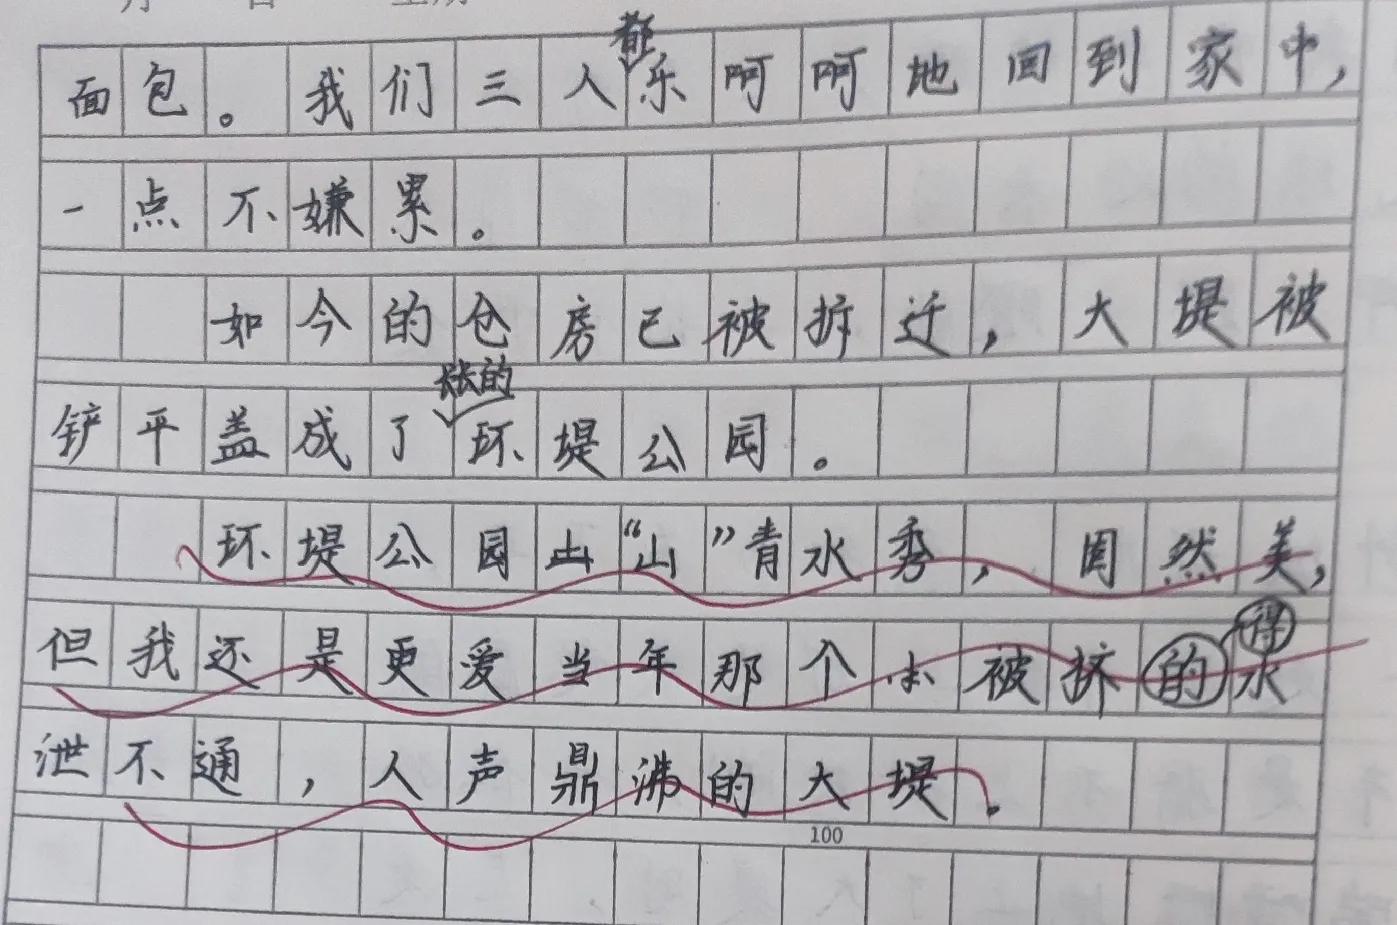 都
面包。我们三人乐呵呵地回到家中，
一点不嫌累。
如今的仓房已被拆迁，大堤被
长长的
铲平盖成了环堤公园。
环堤公园山“山”青水秀，固然美，
得
但我还是更爱当年那个小被挤的水
泄不通，人声鼎沸的大堤。
100